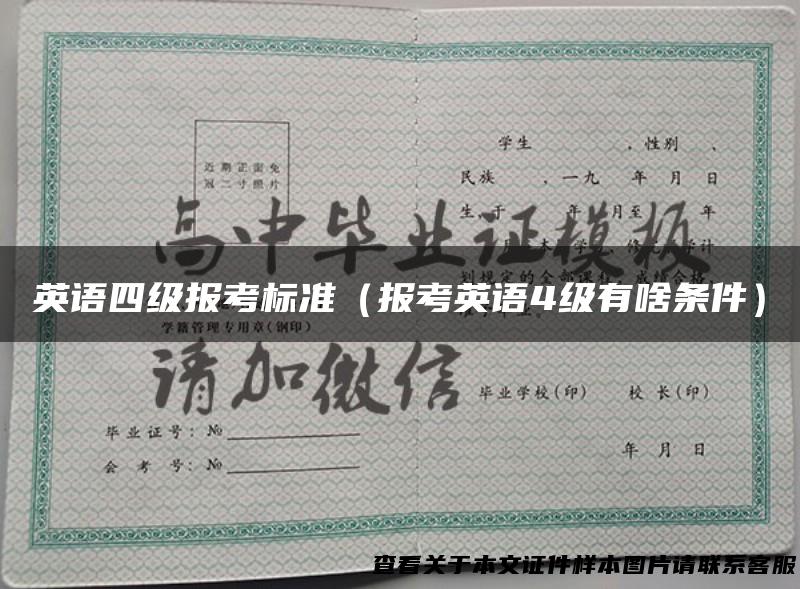 近期正面免
冠二寸照片
学籍管理专用章(钢印)
毕业证号：№
会考号：№
学生　　　，性别　、
民族　　，一九　年　月　日
生，于　　年　月至　　年
划规定的全部课程，成绩合格
毕业学校(印)　校长(印)
年　月　日
高中毕业证模板
请加微信
英语四级报考标准（报考英语4级有啥条件）
查看关于本文证件样本图片请联系客服